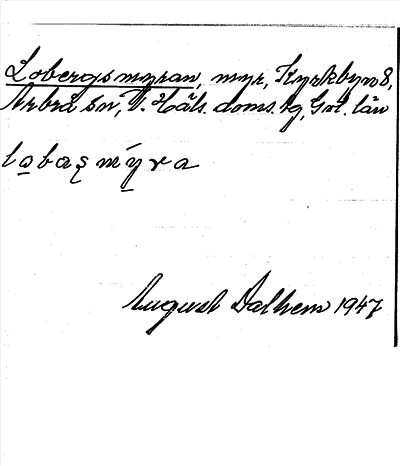 Lobergsmyran, myr, Kyrkbyn 8,
Arbrå sn, V. Häls. doms. tg, Gvl. län
lobaş mýra
August Dalhem 1947